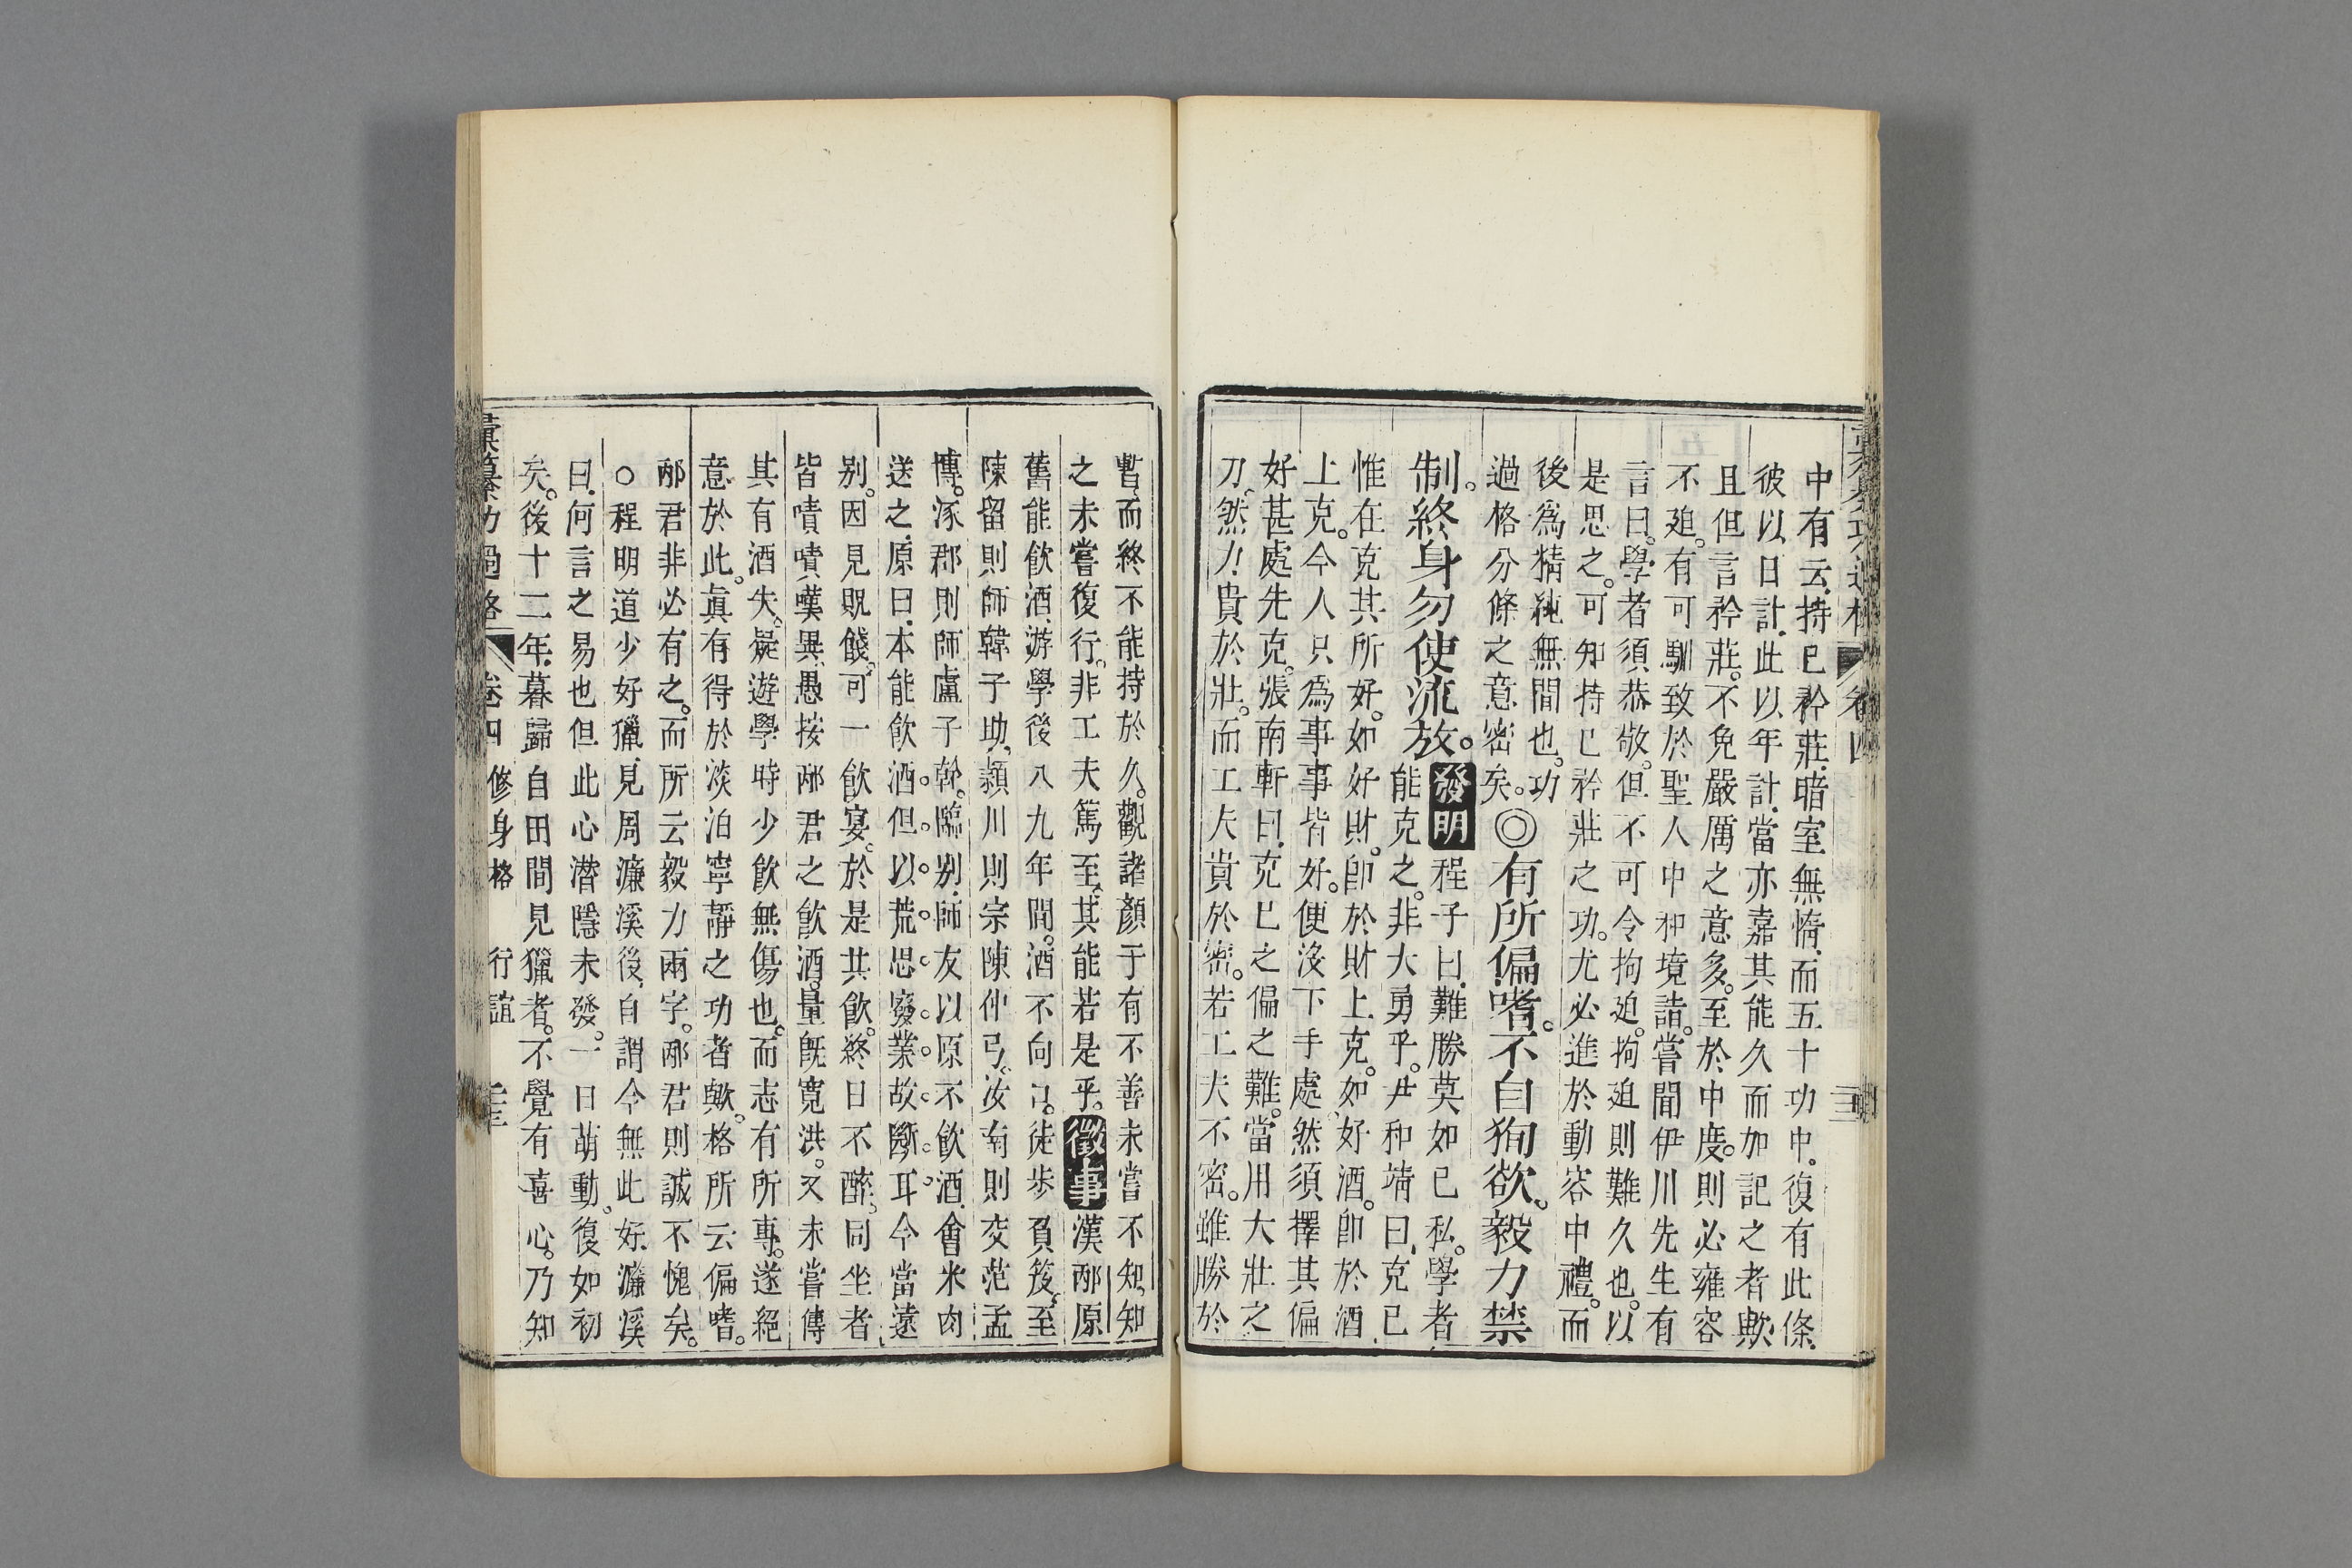 中有云持已矜莊暗室無惰而五十功中復有此條
彼以日計此以年計當亦嘉其能久而加記之者歟
且但言矜莊不免嚴厲之意多至於中度則必雍容
不廹有可馴致於聖人中和境詣嘗聞伊川先生有
言曰學者須恭敬但不可令拘廹拘廹則難久也以
是思之可知持已矜莊之功尤必進於動容中禮而
後爲精純無間也功
過格分條之意密矣◎有所偏嗜不自狥欲毅力禁
制終身勿使流放發明程子曰難勝莫如已私學者
能克之非大勇乎尹和靖曰克已
惟在克其所好如好財卽於財上克如好酒卽於酒
上克今人只爲事事皆好便沒下手處然須擇其偏
好甚處先克張南軒曰克已之偏之難當用大壯之
力然力貴於壯而工夫貴於密若工夫不密雖勝於
暫而終不能持於久觀諸顏子有不善未嘗不知知
之未嘗復行非工夫篤至其能若是乎徵事漢邴原
舊能飲酒游學後八九年間酒不向口徒步負笈至
陳留則師韓子助潁川則宗陳仲弓汝南則交范孟
博涿郡則師盧子幹臨別師友以原不飲酒會米肉
送之原曰本能飲酒但以荒思廢業故斷耳今當遠
别因見貺餞可一飲宴於是共飲終日不醉同坐者
皆嘖嘖嘆異愚按邴君之飲酒量旣寬洪又未嘗傳
其有酒失疑遊學時少飲無傷也而志有所專遂絕
意於此眞有得於淡泊寧靜之功者歟格所云偏嗜
邴君非必有之而所云毅力兩字邴君則誠不愧矣
○程明道少好獵見周濂溪後自謂今無此好濂溪
曰何言之易也但此心潛隱未發一日萌動復如初
矣後十二年暮歸自田間見獵者不覺有喜心乃知
彙纂功過格 卷四 修身格 行誼